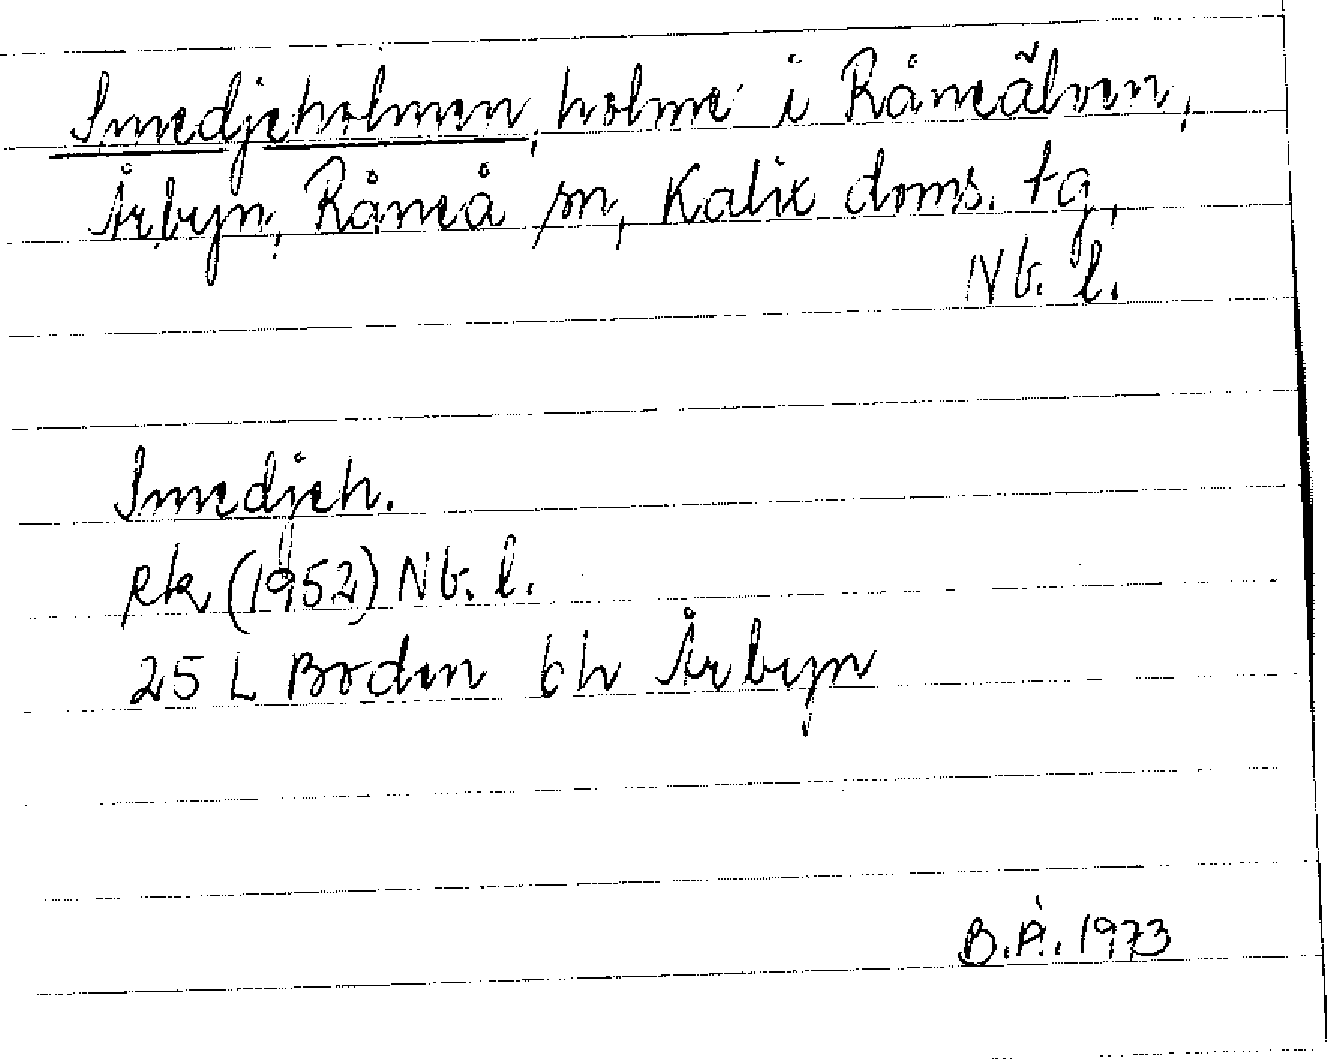 Smedjeholmen, holme i Råneälven,
Årbyn, Råneå sn, Kalix doms. tg,
Nb. l.
Smedjeh.
Rk (1952) Nb. l.
25 L Boden bh Årbyn
B.Å. 1973